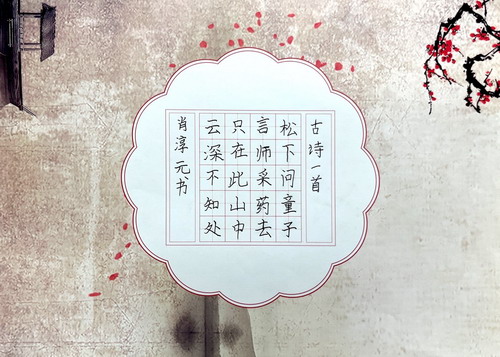 古诗一首
松下问童子
言师采药去
只在此山中
云深不知处
肖淳元书